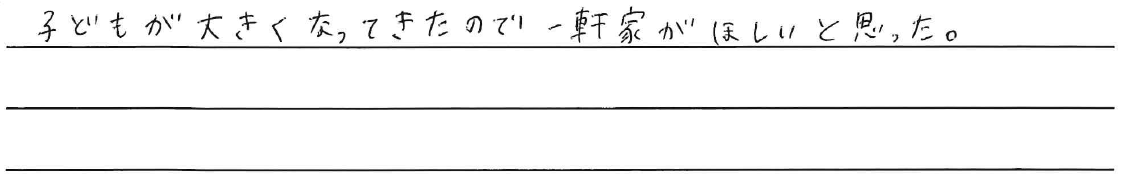 子どもが大きくなってきたので一軒家がほしいと思った。